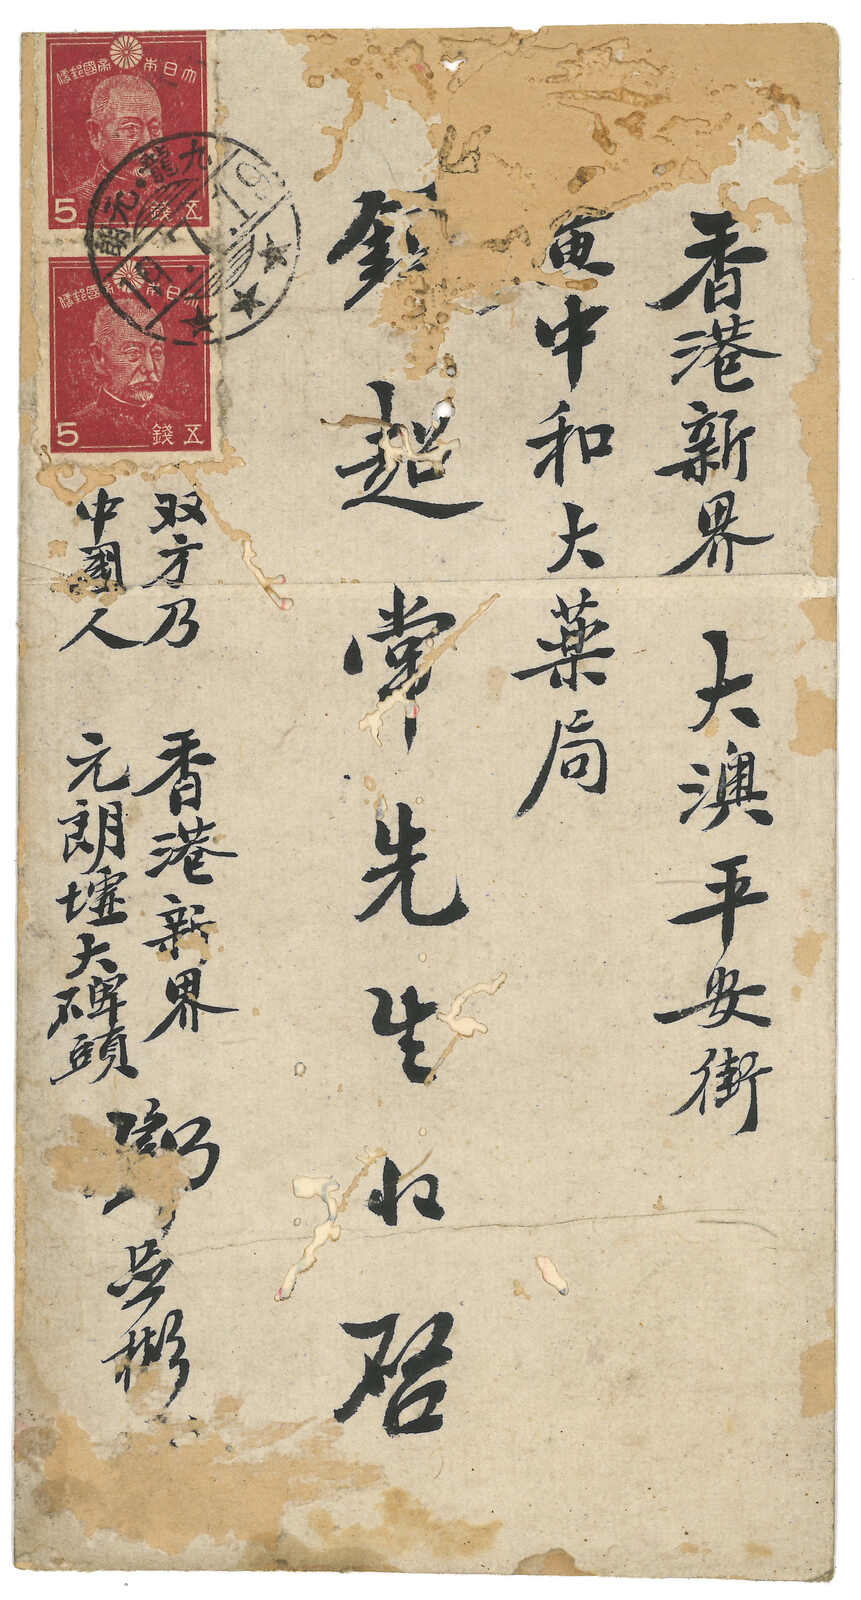 香港新界 大澳平安街
中和大薬局
超常先生收啓
大日本帝國郵便
5 五錢
大日本帝國郵便
5 五錢
九龍·元朗
双方乃
中國人
香港新界
元朗墟大碑頭
鄧